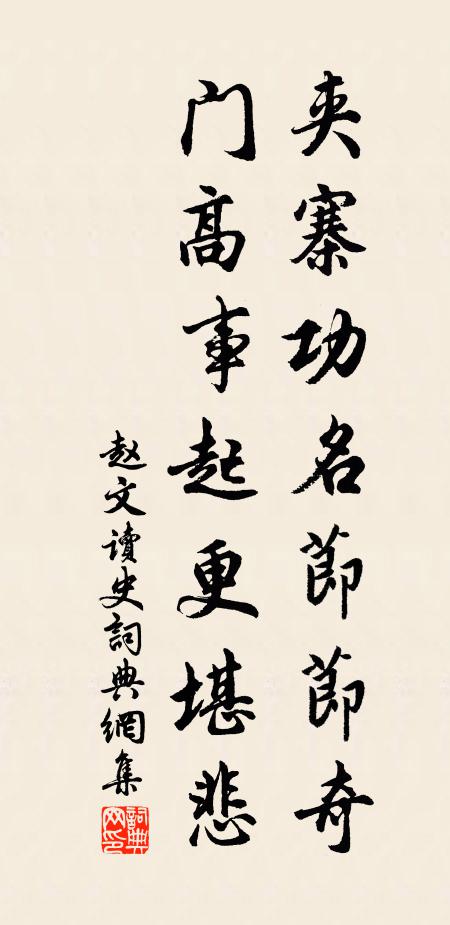 夹寨功名節節奇
门高事起更堪悲
赵文讀史詞典網集
詞典網印